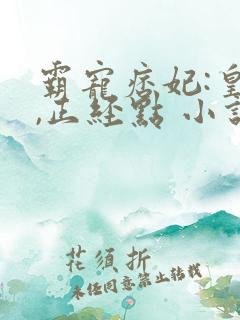 霸寵痞妃:皇
,正經點 小說
花須折
未經同意禁止轉載